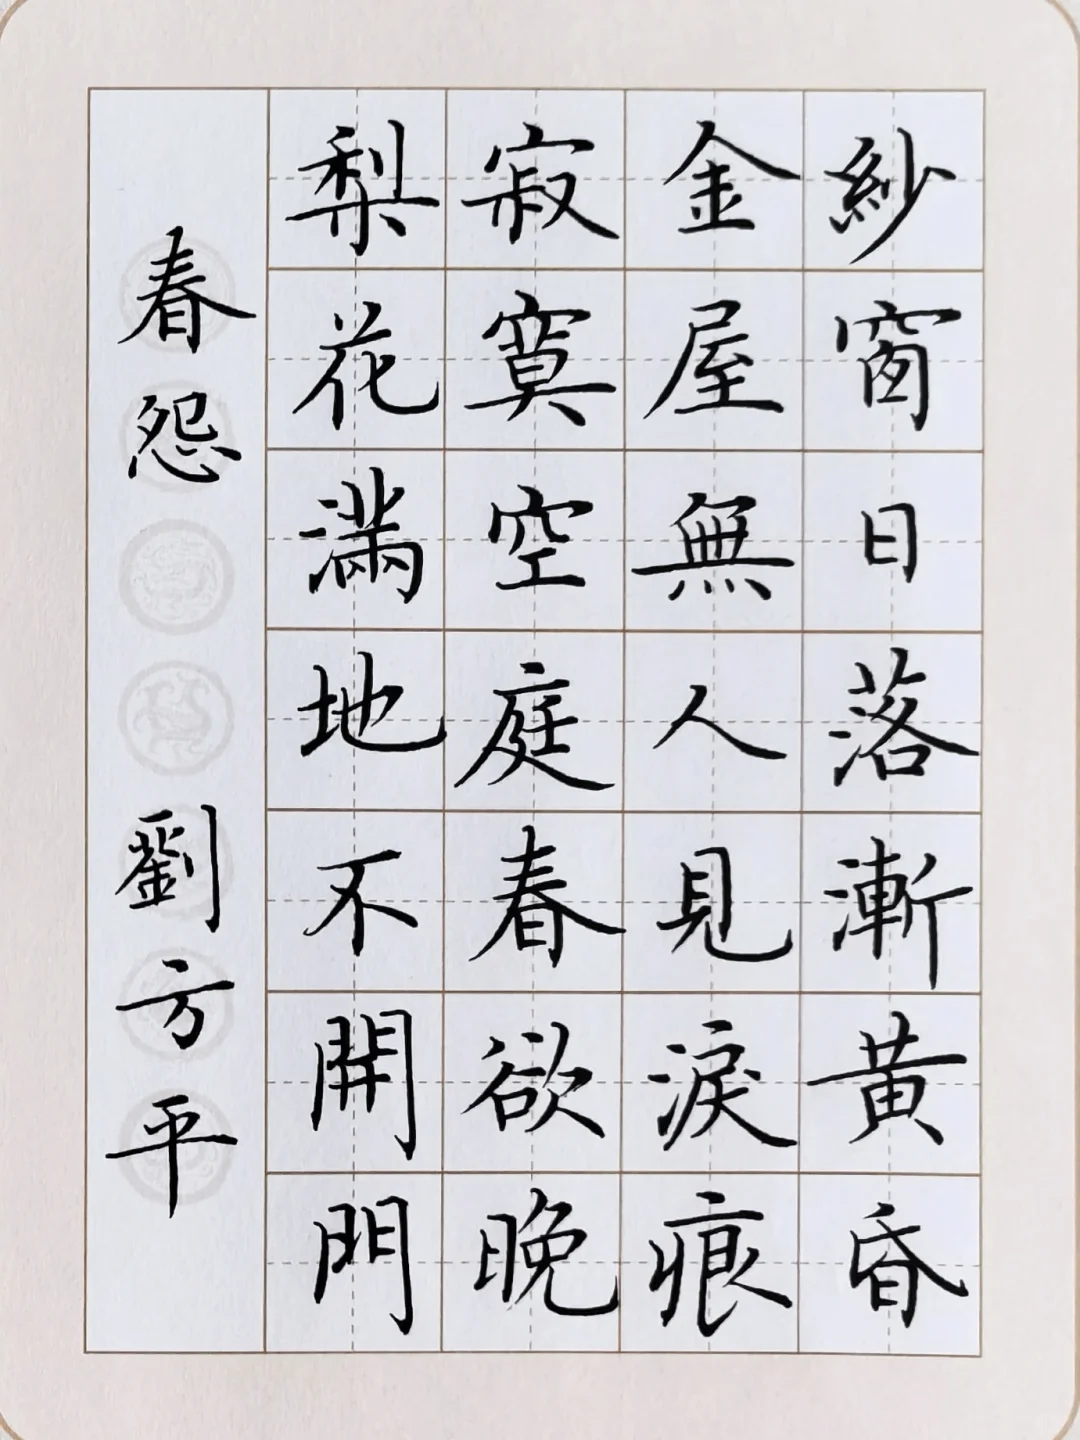 紗窗日落漸黃昏
金屋無人見淚痕
寂寞空庭春欲晚
梨花滿地不開門
春怨 劉方平